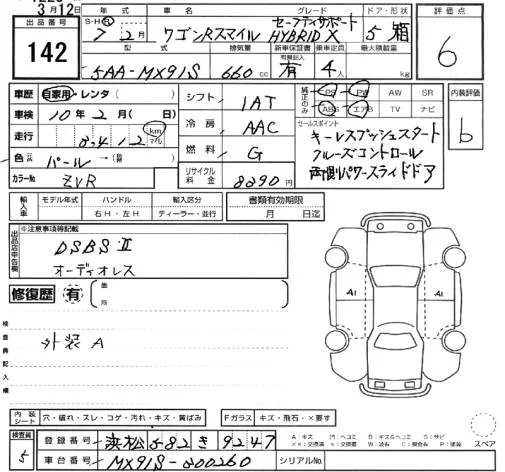 3月12日
出品番号
142
年式 車名 グレード ドア・形状 評価点
S・H・R
7年2月 ワゴンRスマイル セーフティサポート HYBRID X 5 箱
6
型式 排気量 新車保証書 乗車定員 最大積載量
有無記入
5AA-MX91S 660cc 有 4人 kg
車歴 自家用・レンタ( )
車検 10年2月( 日)
走行 8,412 km マイル
色 パール→( )
カラーNo ZVR
シフト 1AT
冷房 AAC
燃料 G
リサイクル料金 8290円
純正のみ PS PW AW SR
ABS エアB TV ナビ
内装評価
b
セールスポイント
キーレスプッシュスタート
クルーズコントロール
両側パワースライドドア
輸入車 モデル年式 ハンドル 輸入区分
右H・左H ディーラー・並行
書類有効期限
月 日迄
出品店申告欄
※注意事項等記載
DSBSⅡ
オーディオレス
修復歴 有 箇所
検査員記入欄
外装 A
A1 A1
内装シート 穴・破れ・スレ・コゲ・汚れ・キズ・黄ばみ
Fガラス キズ・飛石・×要す
スペア
検査員
5
登録番号 浜松 582 き 9247
A:キズ
車台番号 MX91S-800260
シリアルNo.